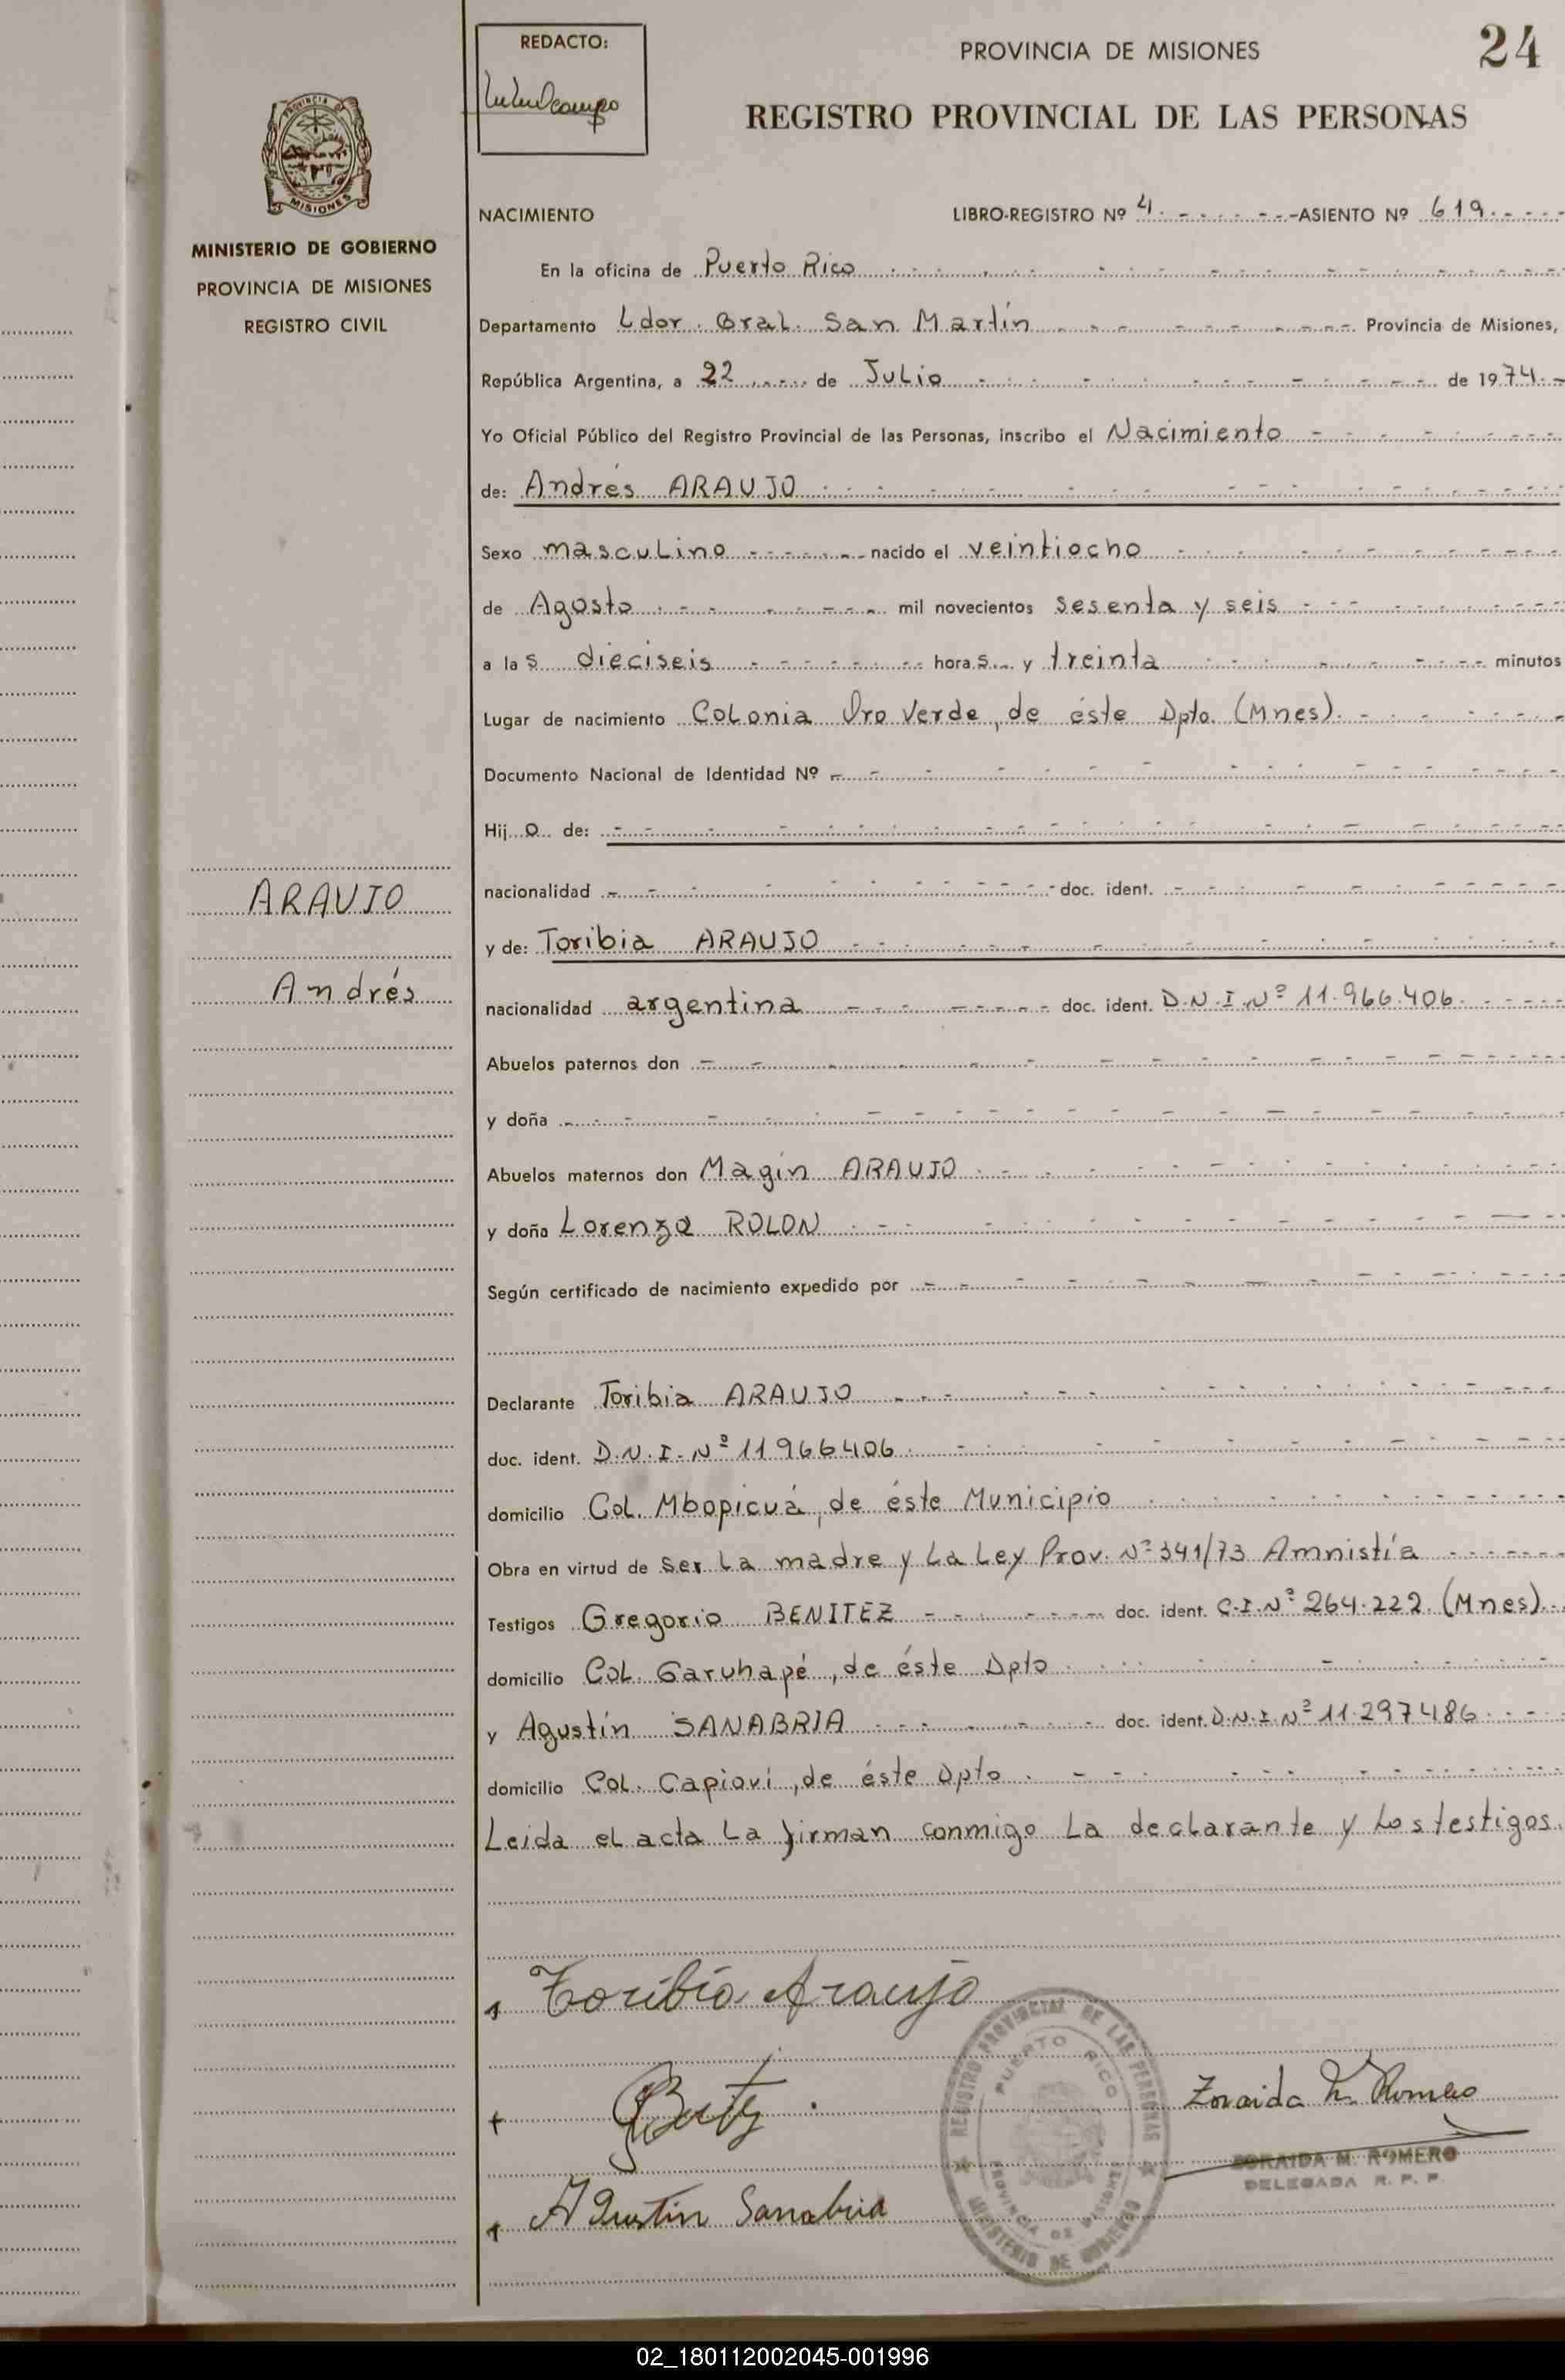 REDACTO:
PROVINCIA DE MISIONES
24
REGISTRO PROVINCIAL DE LAS PERSONAS
PROVINCIA
MISIONES
MINISTERIO DE GOBIERNO
PROVINCIA DE MISIONES
REGISTRO CIVIL
NACIMIENTO LIBRO-REGISTRO Nº 4 ASIENTO Nº 619
En la oficina de Puerto Rico
Departamento Ldor. Gral. San Martín Provincia de Misiones,
República Argentina, a 22 de Julio de 1974
Yo Oficial Público del Registro Provincial de las Personas, inscribo el Nacimiento
de: Andrés ARAUJO
Sexo masculino nacido el veintiocho
de Agosto mil novecientos sesenta y seis
a las dieciseis horas y treinta minutos
Lugar de nacimiento Colonia Oro Verde, de éste Dpto. (Mnes).
Documento Nacional de Identidad Nº
Hijo de:
nacionalidad doc. ident.
ARAUJO
Andrés
y de: Toribia ARAUJO
nacionalidad argentina doc. ident. D.N.I.Nº 11.966.406
Abuelos paternos don
y doña
Abuelos maternos don Magín ARAUJO
y doña Lorenza ROLON
Según certificado de nacimiento expedido por
Declarante Toribia ARAUJO
doc. ident. D.N.I.Nº 11966406
domicilio Col. Mbopicuá, de éste Municipio
Obra en virtud de Ser La madre y La Ley Prov. Nº 341/73 Amnistía
Testigos Gregorio BENITEZ doc. ident. C.I.Nº 264.222 (Mnes).
domicilio Col. Garuhapé, de éste Dpto
y Agustín SANABRIA doc. ident. D.N.I.Nº 11.297486
domicilio Col. Capioví, de éste Dpto
Leida el acta La firman conmigo La declarante y Los testigos.
Toribia Araujo
Agustin Sanabria
REGISTRO PROVINCIAL DE LAS PERSONAS
PUERTO RICO
PROVINCIA DE MISIONES
MINISTERIO DE GOBIERNO
Zoraida M. Romero
ZORAIDA M. ROMERO
DELEGADA R. P. P.
02_180112002045-001996